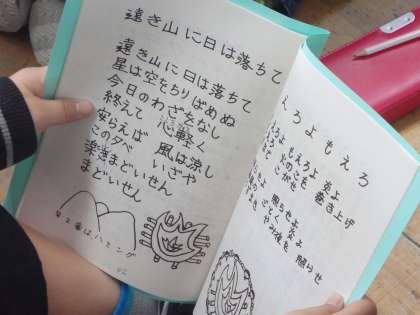 遠き山に日は落ちて
遠き山に日は落ちて
星は空をちりばめぬ
今日のわざをなし
終えて 心軽く
安らえば 風は涼し
この夕べ いざや
楽きまどいせん
まどいせん
えろよもえろ
ろよ もえろよ 炎よ
火のこを 巻き上げ
こがせ
照らせよ
炎よ
照らせ